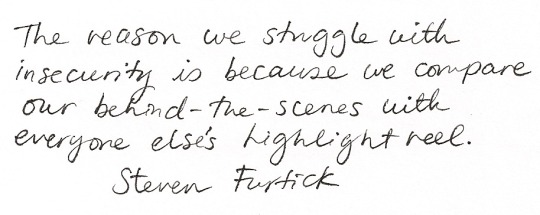 The reason we struggle with
insecurity is because we compare
our behind-the-scenes with
everyone else's highlight reel.
Steven Furtick